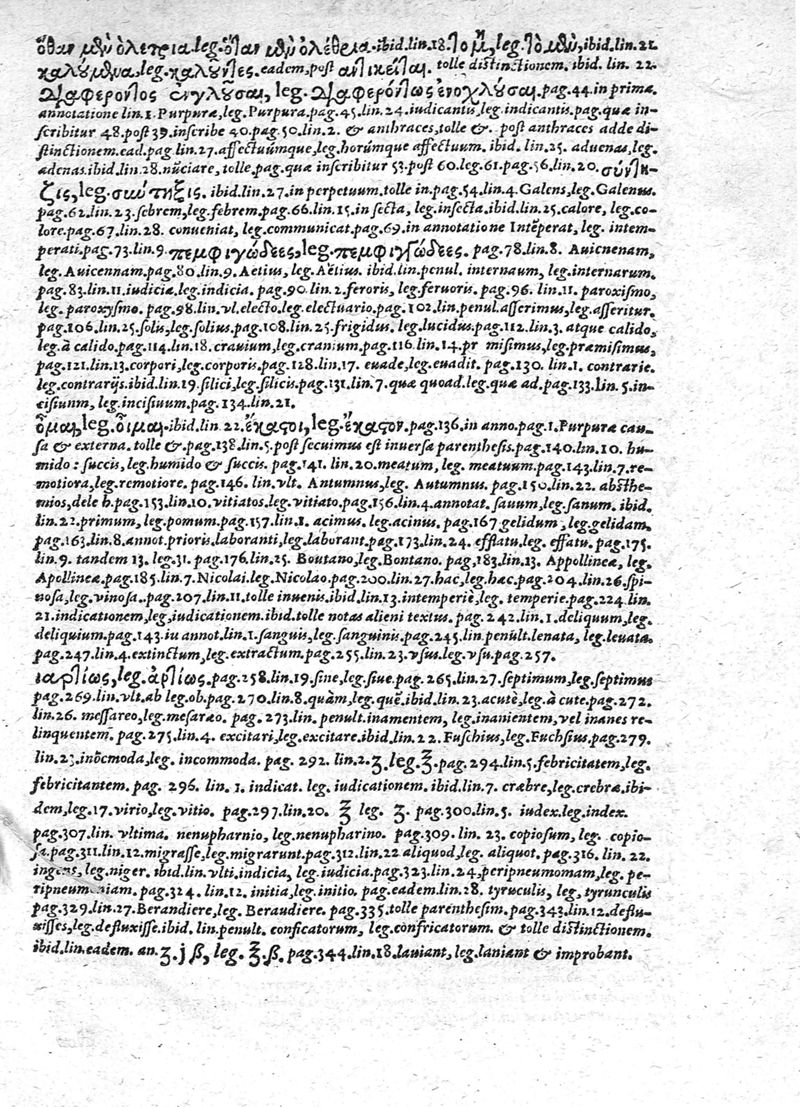 ὅθαν μθὺ ὀλετρια. leg. ὅταν μθὺ ὀλέθρια. ibid. lin. 18. το μ̃, leg. τὸ μθὺ, ibid. lin. 21.
καλύμθυα, leg. καλοῦντες. eadem, post αντικειται. tolle distinctionem. ibid. lin. 22.
Διαφεροντος ἐνγλοῦσαι, leg. Διαφερόντως ἐνοχλοῦσαι. pag. 44. in prima
annotatione lin. 1. Purpuræ, leg. Purpura. pag. 45. lin. 24. iudicantis, leg. indicantis. pag. quæ in-
scribitur 48. post 39. inscribe 40. pag. 50. lin. 2. & anthraces, tolle &. post anthraces adde di-
stinctionem. ead. pag. lin. 27. affectuúmque, leg. horúmque affectuum. ibid. lin. 25. aduenas, leg.
adenas. ibid. lin. 28. nũciare, tolle, pag. quæ inscribitur 53. post 60. leg. 61. pag. 56. lin. 20. σύντη-
ζις, leg. σωτηξις. ibid. lin. 27. in perpetuum. tolle in. pag. 54. lin. 4. Galens, leg. Galenus
pag. 62. lin. 23. sebrem, leg. febrem. pag. 66. lin. 15. in secta, leg. insecta. ibid. lin. 25. calore, leg. co-
lore. pag. 67. lin. 28. conueniat, leg. communicat. pag. 69. in annotatione Intẽperat, leg. intem-
perati. pag. 73. lin. 9. πεμφιγώδεες, leg. πεμφιγώδεες. pag. 78. lin. 8. Auicnenam,
leg. Auicennam. pag. 80. lin. 9. Aetius, leg. Aëtius. ibid. lin. penul. internaum, leg. internarum.
pag. 83. lin. 11. iudicia, leg. indicia. pag. 90. lin. 2. feroris, leg. feruoris. pag. 96. lin. 11. paroxismo,
leg. paroxysmo. pag. 98. lin. vl. electo, leg. electuario. pag. 102. lin. penul. asserimus, leg. asseritur.
pag. 106. lin. 25. solis, leg. solius. pag. 108. lin. 25. frigidus, leg. lucidus. pag. 112. lin. 3. atque calido,
leg. à calido. pag. 114. lin. 18. crauium, leg. cranium. pag. 116. lin. 14. pr misimus, leg. præmisimus,
pag. 121. lin. 13. corpori, leg. corporis. pag. 128. lin. 17. euade, leg. euadit. pag. 130. lin. 1. contrarie.
leg. contrarijs. ibid. lin. 19. silici, leg. silicis. pag. 131. lin. 7. quæ quoad. leg. quæ ad. pag. 133. lin. 5. in-
cisiunm, leg. incisiuum. pag. 134. lin. 21.
ὅμαι, leg. οἶμαι. ibid. lin. 22. ἑκαστι, leg. ἕκαστον. pag. 136. in anno. pag. 1. Purpuræ cau-
sa & externa. tolle &. pag. 138. lin. 5. post secuimus est inuersa parenthesis. pag. 140. lin. 10. hu-
mido : succis, leg. humido & succis. pag. 141. lin. 20. meatum, leg. meatuum. pag. 143. lin. 7. re-
motiora, leg. remotiore. pag. 146. lin. vlt. Antumnus, leg. Autumnus. pag. 150. lin. 22. absthe-
mios, dele h. pag. 153. lin. 10. vitiatos, leg. vitiato. pag. 156. lin. 4. annotat. sauum, leg. sanum. ibid.
lin. 22. primum, leg. pomum. pag. 157. lin. 1. acimus. leg. acinus. pag. 167. gelidum, leg. gelidam,
pag. 163. lin. 8. annot. prioris. laboranti, leg. laborant. pag. 173. lin. 24. efflatu, leg. effatu. pag. 175.
lin. 9. tandem 13. leg. 31. pag. 176. lin. 25. Boutano, leg. Bontano. pag. 183. lin. 13. Appollineæ, leg.
Apollineæ. pag. 185. lin. 7. Nicolai, leg. Nicolao. pag. 200. lin. 27. hac, leg. hæc. pag. 204. lin. 26. spi-
nosa, leg. vinosa. pag. 207. lin. 11. tolle inuenis. ibid. lin. 13. intemperiè, leg. temperie. pag. 224. lin.
21. indicationem, leg. iudicationem. ibid. tolle notas alieni textus. pag. 242. lin. 1. deliquum, leg.
deliquium. pag. 143. in annot. lin. 1. sanguis, leg. sanguinis. pag. 245. lin. penult. lenata, leg. leuata.
pag. 247. lin. 4. extinctum, leg. extractum. pag. 255. lin. 23. vsus, leg. vsu. pag. 257.
ιαρτίως, leg. ἀρτίως. pag. 258. lin. 19. sine, leg. siue. pag. 265. lin. 27. septimum, leg. septimus
pag. 269. lin. vlt. ab leg. ob. pag. 270. lin. 8. quàm, leg. quẽ. ibid. lin. 23. acutè, leg. à cute. pag. 272.
lin. 26. messareo, leg. mesaræo. pag. 273. lin. penult. inamentem, leg. inanientem, vel inanes re-
linquentem. pag. 275. lin. 4. excitari, leg. excitare. ibid. lin. 22. Fuschius, leg. Fuchsius. pag. 279.
lin. 23. inõcmoda, leg. incommoda. pag. 292. lin. 2. ʒ. leg. ℥. pag. 294. lin. 5. febricitatem, leg.
febricitantem. pag. 296. lin. 1. indicat. leg. iudicationem. ibid. lin. 7. cræbre, leg. crebræ. ibi-
dem, leg. 17. virio, leg. vitio. pag. 297. lin. 20. ℥ leg. ʒ. pag. 300. lin. 5. iudex. leg. index.
pag. 307. lin. vltima. nenupharnio, leg. nenupharino. pag. 309. lin. 23. copiosum, leg. copio-
sa. pag. 311. lin. 12. migrasse, leg. migrarunt. pag. 312. lin. 22 aliquod, leg. aliquot. pag. 316. lin. 22.
ingens, leg. niger. ibid. lin. vlti. indicia, leg. iudicia. pag. 323. lin. 24. peripneumomam, leg. pe-
ripneumoniam. pag. 324. lin. 12. initia, leg. initio. pag. eadem. lin. 28. tyruculis, leg, tyrunculis
pag. 329. lin. 27. Berandiere, leg. Beraudiere. pag. 335. tolle parenthesim. pag. 343. lin. 12. deflu-
xisses, leg. defluxisse. ibid. lin. penult. conficatorum, leg. confricatorum. & tolle distinctionem.
ibid. lin. eadem. an. ʒ. j ß, leg. ℥. ß. pag. 344. lin. 18. lauiant, leg. laniant & improbant.